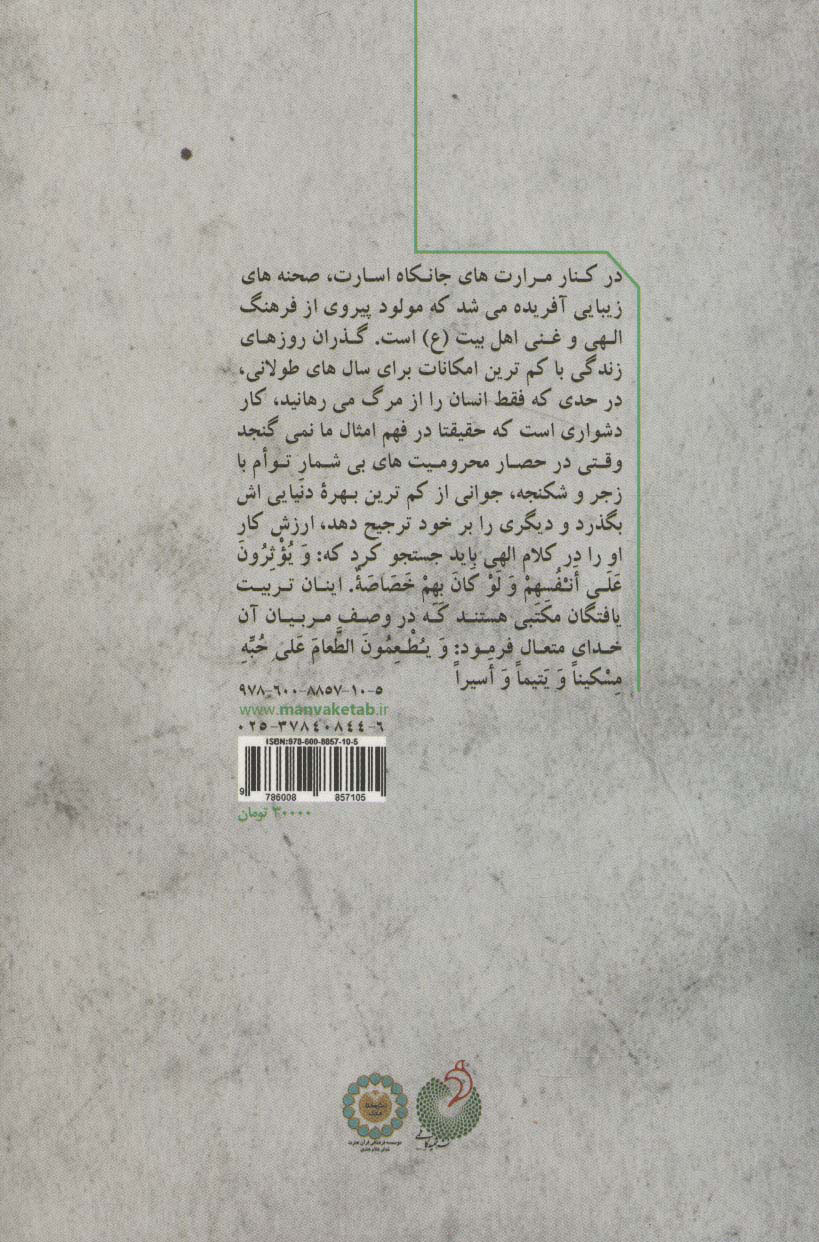 در کنار مرارت های جانکاه اسارت، صحنه های
زیبایی آفریده می شد که مولود پیروی از فرهنگ
الهی و غنی اهل بیت (ع) است. گذران روزهای
زندگی با کم ترین امکانات برای سال های طولانی،
در حدی که فقط انسان را از مرگ می رهانید، کار
دشواری است که حقیقتا در فهم امثال ما نمی گنجد
وقتی در حصار محرومیت های بی شمار توأم با
زجر و شکنجه، جوانی از کم ترین بهرهٔ دنیایی اش
بگذرد و دیگری را بر خود ترجیح دهد، ارزش کار
او را در کلام الهی باید جستجو کرد که: وَ یُؤْثِرُونَ
عَلَی أَنْفُسِهِمْ وَ لَوْ کَانَ بِهِمْ خَصَاصَةٌ. اینان تربیت
یافتگان مکتبی هستند که در وصف مربیان آن
خدای متعال فرمود: وَ یُطْعِمُونَ الطَّعامَ عَلی حُبِّهِ
مِسْکیناً وَ یَتیماً وَ أَسیراً
۹۷۸-٦۰۰-۸۸٥۷-۱۰-٥
www.manvaketab.ir
۰۲٥-۳۷۸٤۰۸٤٤-٦
ISBN:978-600-8857-10-5
9 786008 857105
۳۰۰۰۰ تومان